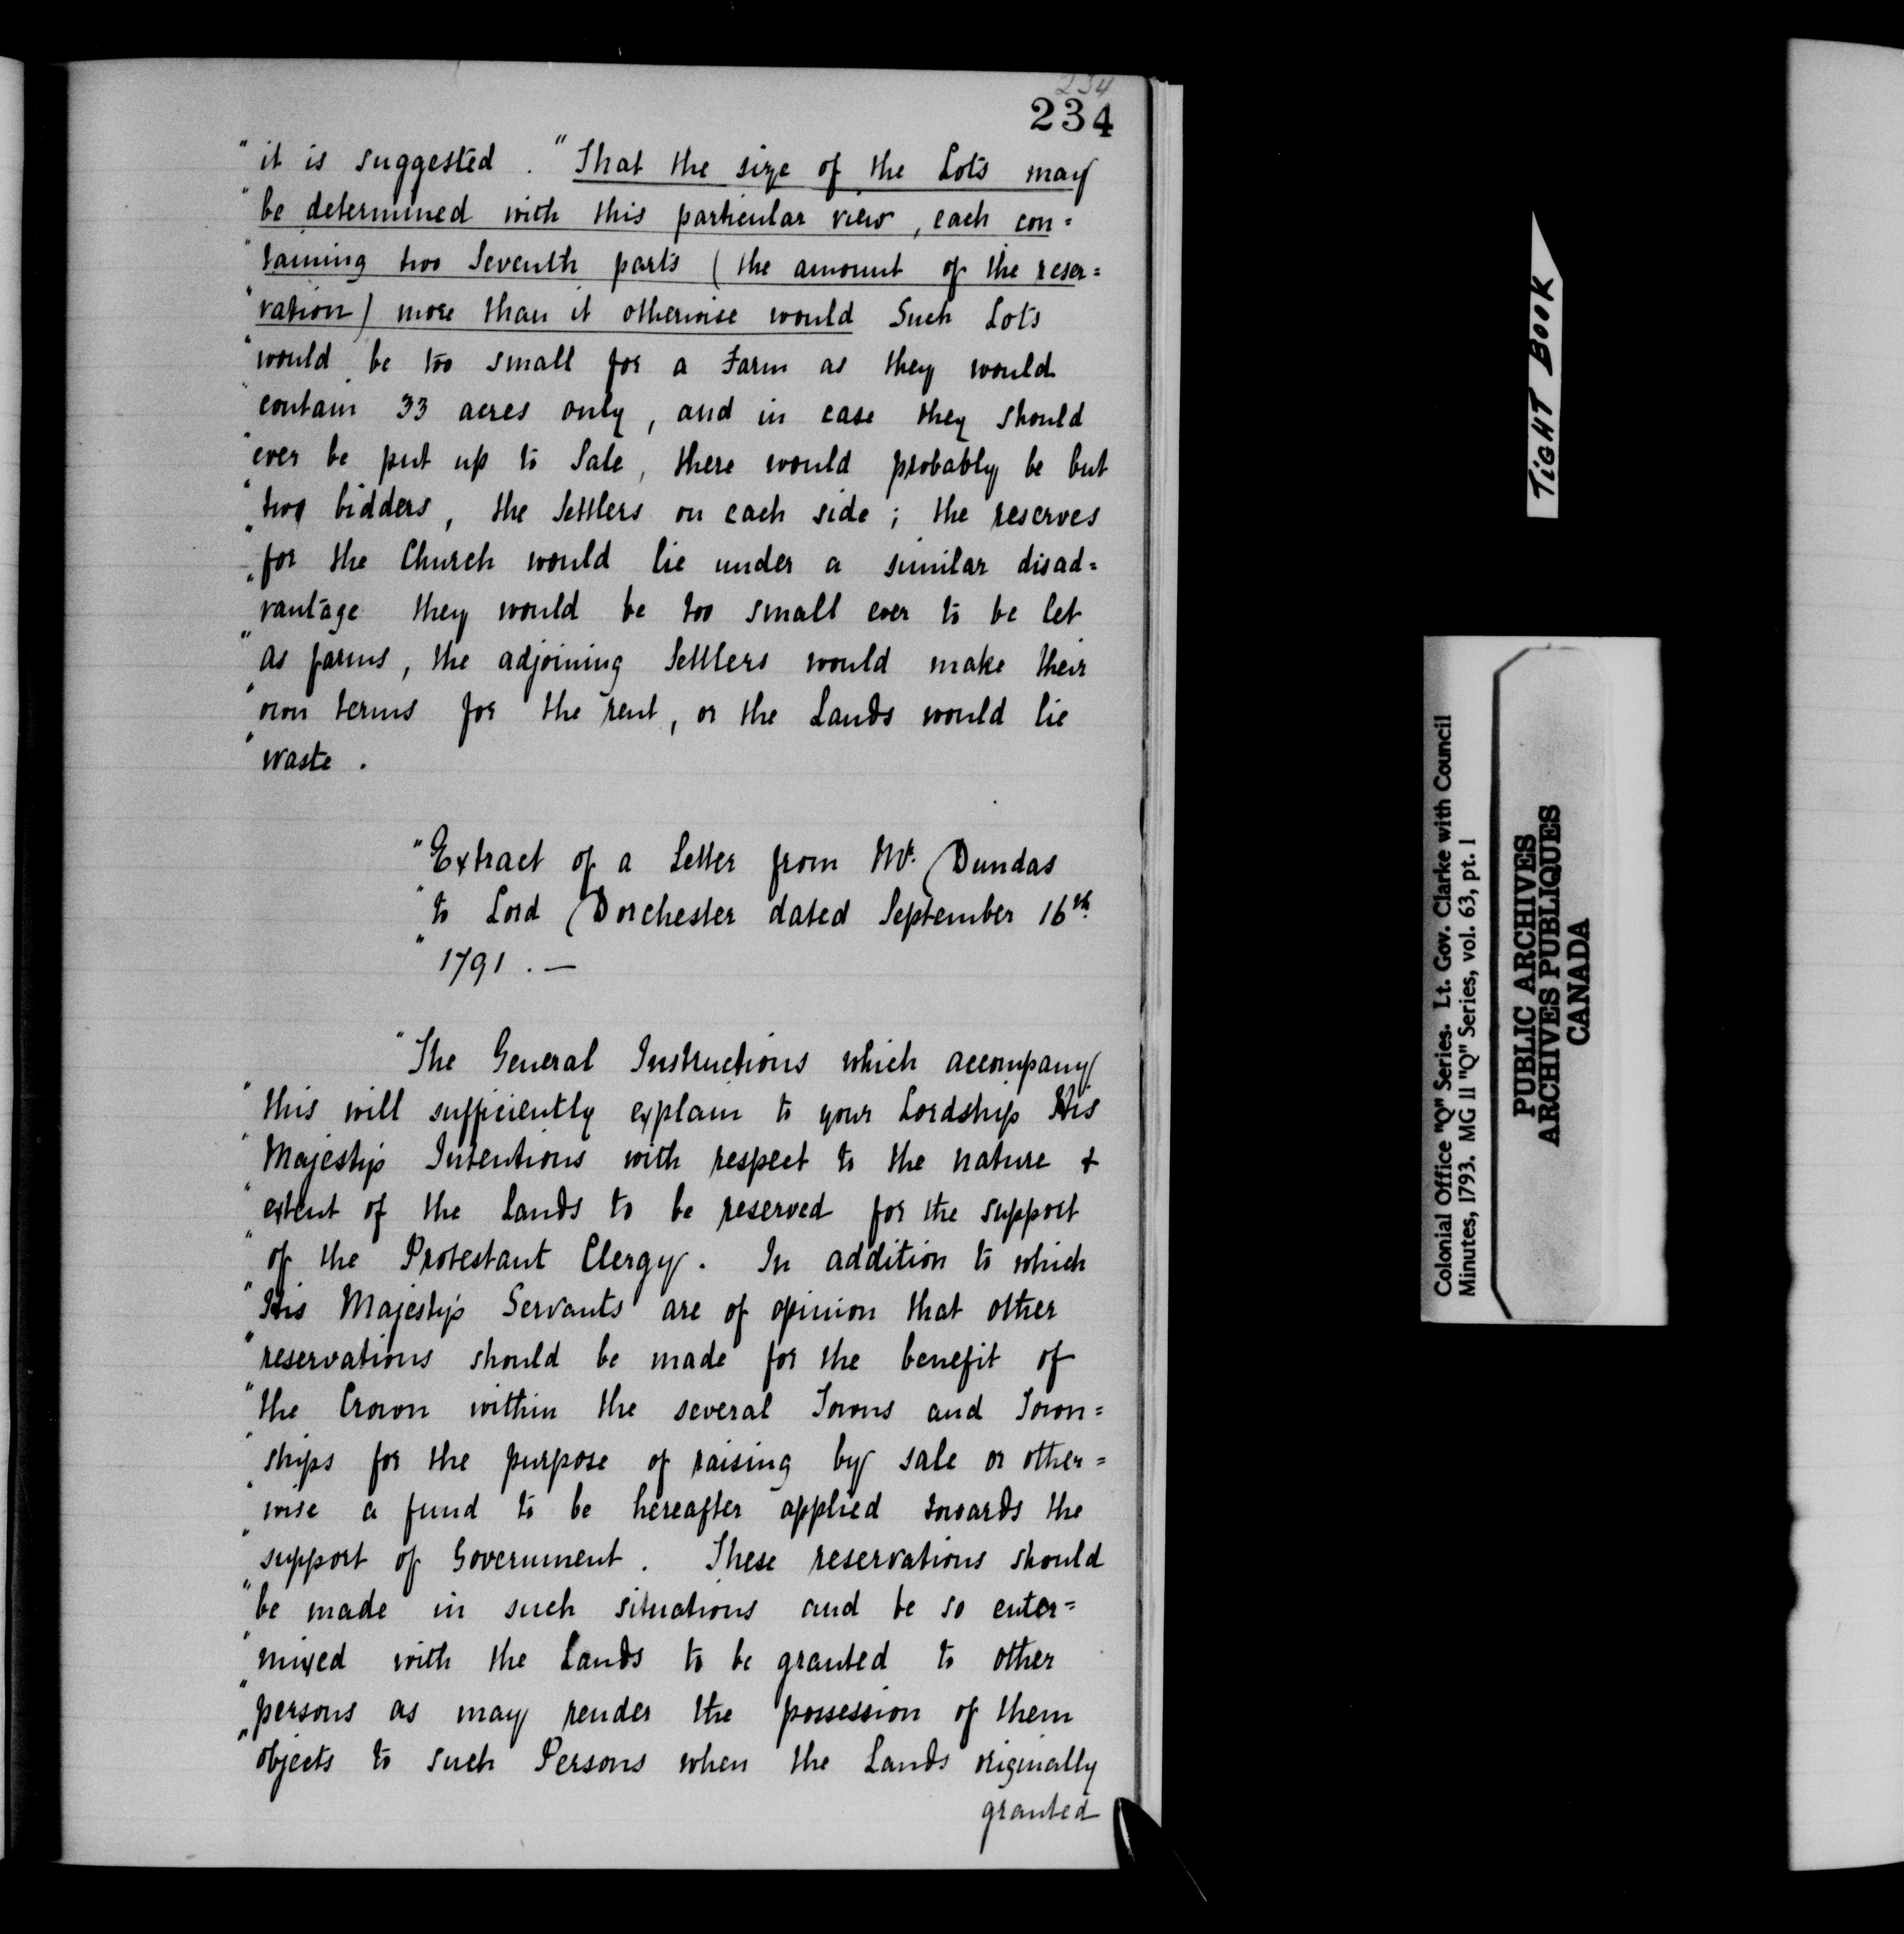 234
234
" it is suggested . " That the size of the Lots may
" be determined with this particular view, each con=
" taining two Seventh parts (the amount of the reser=
" vation) more than it otherwise would Such Lots
" would be too small for a Farm as they would
" contain 33 acres only, and in case they should
" ever be put up to Sale, there would probably be but
" two bidders, the Settlers on each side; the reserves
" for the Church would lie under a similar disad=
" vantage they would be too small ever to be let
" as farms, the adjoining Settlers would make their
" own terms for the rent, or the Lands would lie
" waste .
" Extract of a Letter from Mr. Dundas
" to Lord Dorchester dated September 16th.
" 1791 . —
" The General Instructions which accompany
" this will sufficiently explain to your Lordship His
" Majesty's Intentions with respect to the nature &
" extent of the Lands to be reserved for the support
" of the Protestant Clergy. In addition to which
" His Majesty's Servants are of opinion that other
" reservations should be made for the benefit of
" the Crown within the several Towns and Town=
" ships for the purpose of raising by sale or other=
" wise a fund to be hereafter applied towards the
" support of Government. These reservations should
" be made in such situations and be so enter=
" mixed with the Lands to be granted to other
" persons as may render the possession of them
" objects to such Persons when the Lands originally
granted
TIGHT BOOK
Colonial Office "Q" Series. Lt. Gov. Clarke with Council
Minutes, 1793. MG 11 "Q" Series, vol. 63, pt. 1
PUBLIC ARCHIVES
ARCHIVES PUBLIQUES
CANADA